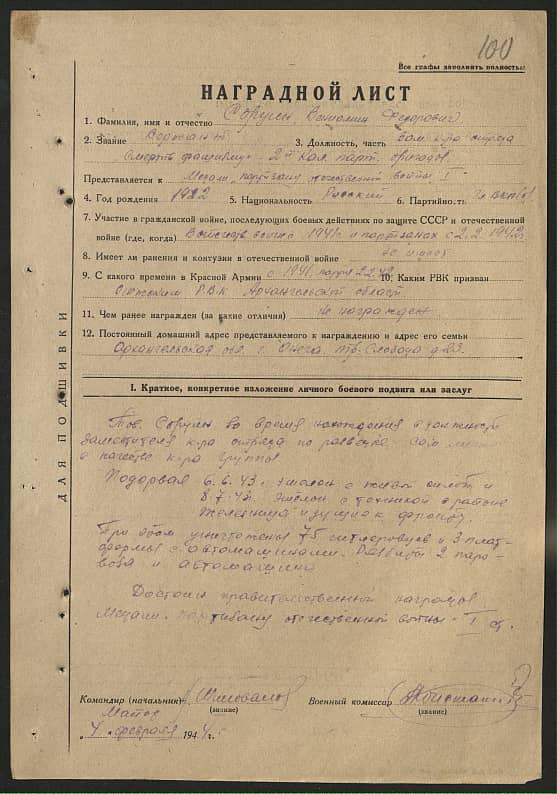 100
Все графы заполнять полностью.
НАГРАДНОЙ ЛИСТ
1. Фамилия, имя и отчество Сорулин Вениамин Федорович
2. Звание Сержант 3. Должность, часть зам. к-ра отряда
Смерть фашизму - 2й Кал. парт. бригады
Представляется к Медали „партизану отечественной войны I"
4. Год рождения 1922 5. Национальность Русский 6. Партийность
7. Участие в гражданской войне, последующих боевых действиях по защите СССР и отечественной
войне (где, когда) В отечеств. войне 1941г. и партизанах с 2.2.1942г
8. Имеет ли ранения и контузии в отечественной войне не имеет
9. С какого времени в Красной Армии с 1941 10. Каким РВК призван
Онежским РВК Архангельской област.
11. Чем ранее награжден (за какие отличия) не награжден
12. Постоянный домашний адрес представляемого к награждению и адрес его семьи
Архангельская обл. г. Онега, Слобода д-23.
ДЛЯ ПОДШИВКИ
I. Краткое, конкретное изложение личного боевого подвига или заслуг
Тов. Сорулин во время нахождения в должности
заместителя к-ра отряда по разведке, сам лично
в качестве к-ра группы
Подорвал 6.6.43г. эшелон с живой силой и
8.7.43. эшелон с техникой в районе
идущие к фронту.
При этом уничтожены 75 гитлеровцев и 3 плат-
формы с автомашинами. Разбиты 2 паро-
воза и автомашина
Достоин правительственной награды
Медали „партизану отечественной войны - I ст.
Командир (начальник) Военный комиссар
(звание) (звание)
„4" февраля 1944 г.